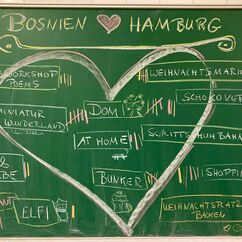 BOSNIEN HAMBURG
WORKSHOP
POEMS
WEIHNACHTSMAR
SCHOKOVER
MINIATUR
WUNDERLAND
DOM
AT HOME
SCHLITTSCHUHBAHN
&
BUNKER
SHOPPIN
ELFI
WEIHNACHTSPLATZ
BACKEN